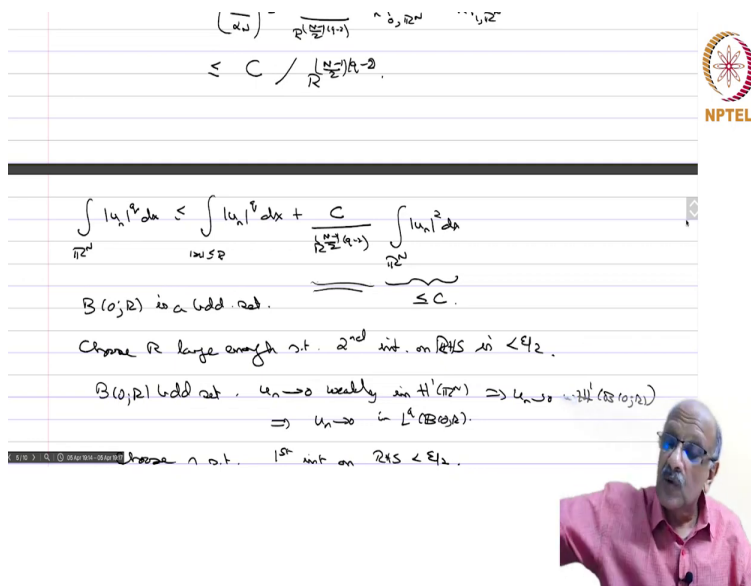 ≤ C / R^{(N-1)/2 (q-2)}.
NPTEL
∫_{ℝ^N} |u_n|^q dx ≤ ∫_{|x|≤R} |u_n|^q dx + C / R^{(N-1)/2 (q-2)} ∫_{ℝ^N} |u_n|^2 dx
≤ C.
B(0;R) is a bdd. set.
Choose R large enough s.t. 2nd int. on RHS is < ε/2.
B(0;R) bdd set. u_n → 0 weakly in H^1(ℝ^N) ⇒ u_n → 0 in H^1(B(0;R))
⇒ u_n → 0 in L^q(B(0;R)).
Choose n s.t. 1st int on RHS < ε/2.
5/10 05 Apr 19:14 – 05 Apr 19:17